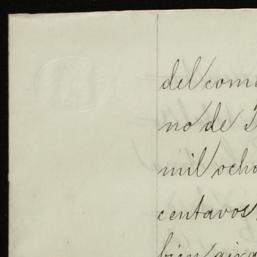 del com
no de
mil ocho
centavos
bien